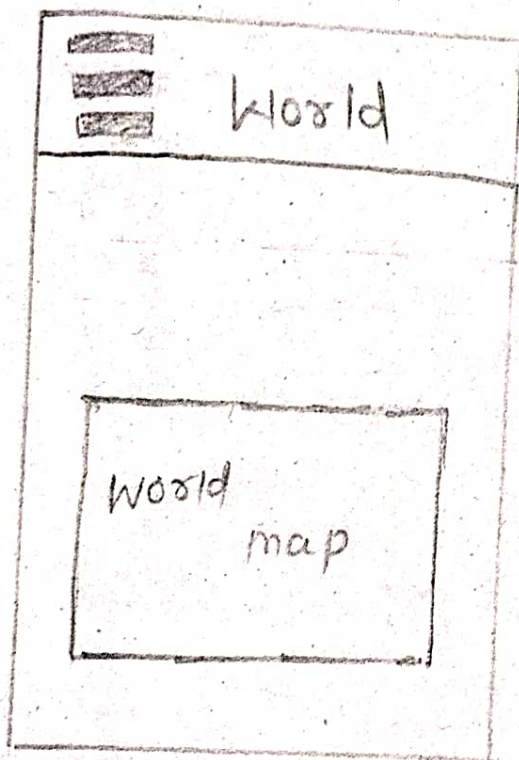 World
World
map